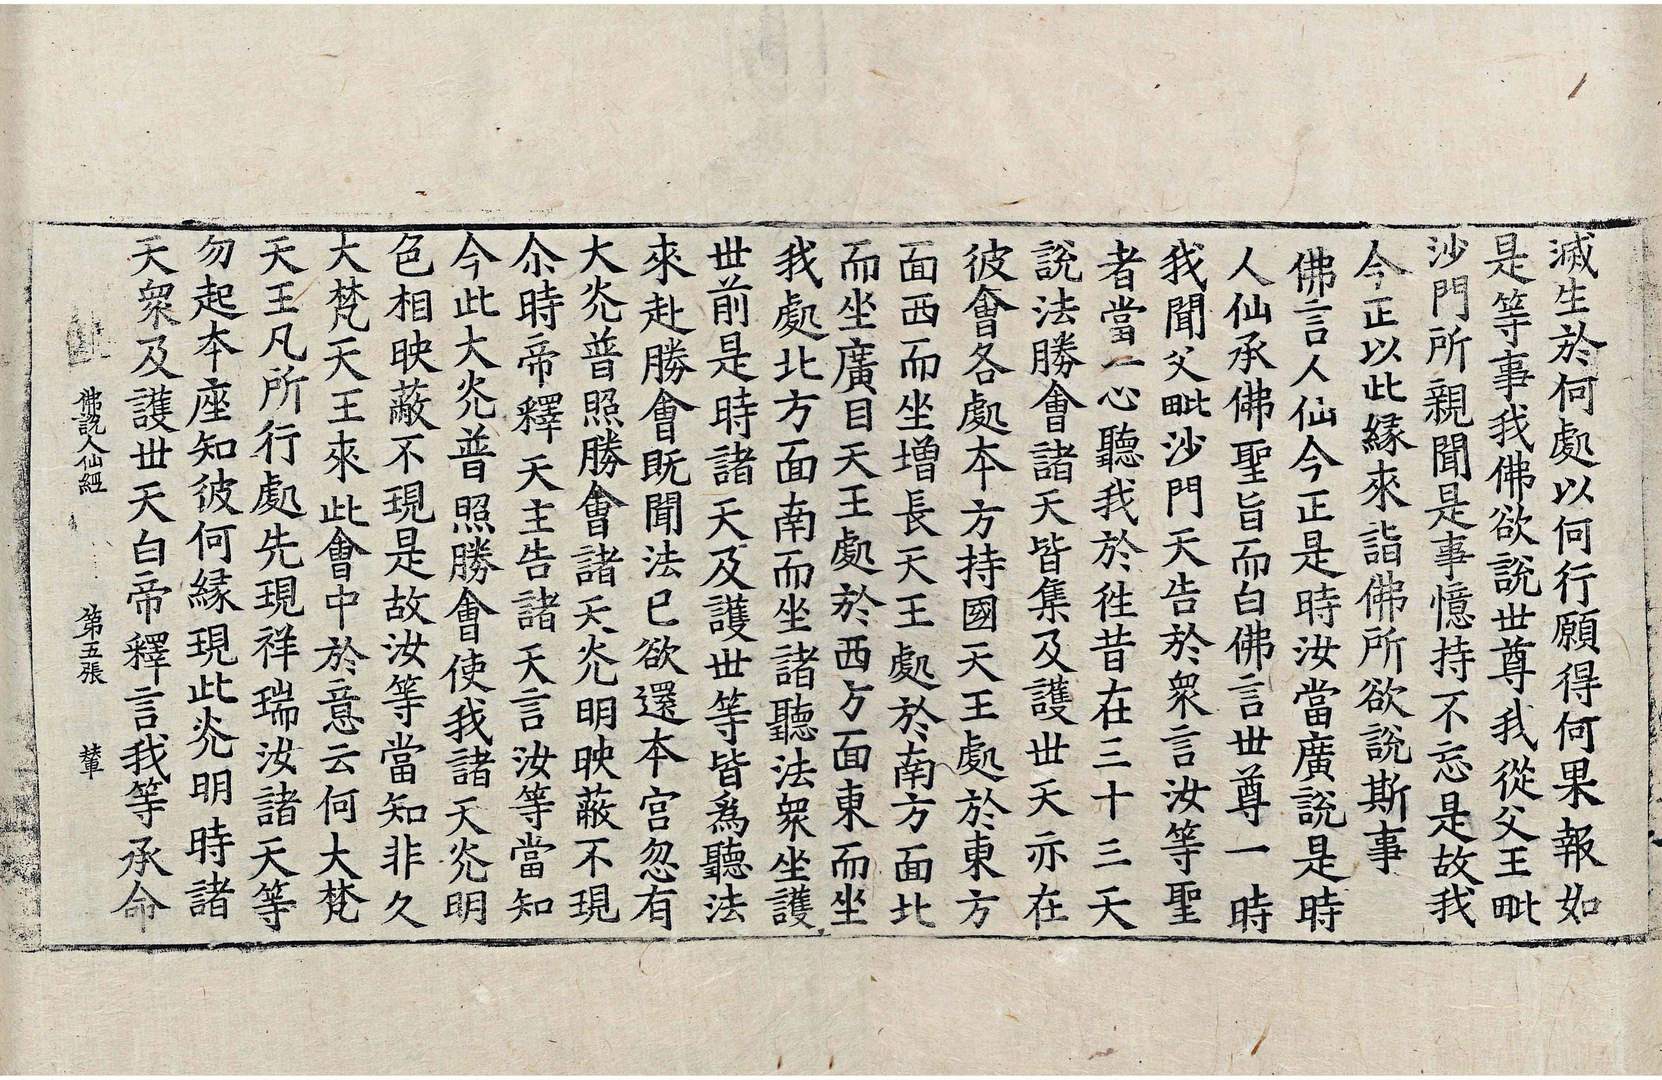 滅生於何處以何行願得何果報如
是等事我佛欲說世尊我從父王毗
沙門所親聞是事憶持不忘是故我
今正以此緣來詣佛所欲說斯事
佛言人仙今正是時汝當廣說是時
人仙承佛聖旨而白佛言世尊一時
我聞父毗沙門天告於衆言汝等聖
者當一心聽我於徃昔在三十三天
說法勝會諸天皆集及護世天亦在
彼會各處本方持國天王處於東方
面西而坐增長天王處於南方面北
而坐廣目天王處於西方面東而坐
我處北方面南而坐諸聽法衆坐護
世前是時諸天及護世等皆爲聽法
來赴勝會既聞法已欲還本宮忽有
大灮普照勝會諸天灮明映蔽不現
尒時帝釋天主告諸天言汝等當知
今此大灮普照勝會使我諸天灮明
色相映蔽不現是故汝等當知非久
大梵天王來此會中於意云何大梵
天王凡所行處先現祥瑞汝諸天等
勿起本座知彼何緣現此灮明時諸
天衆及護世天白帝釋言我等承命
佛說人仙經 第五張 輦